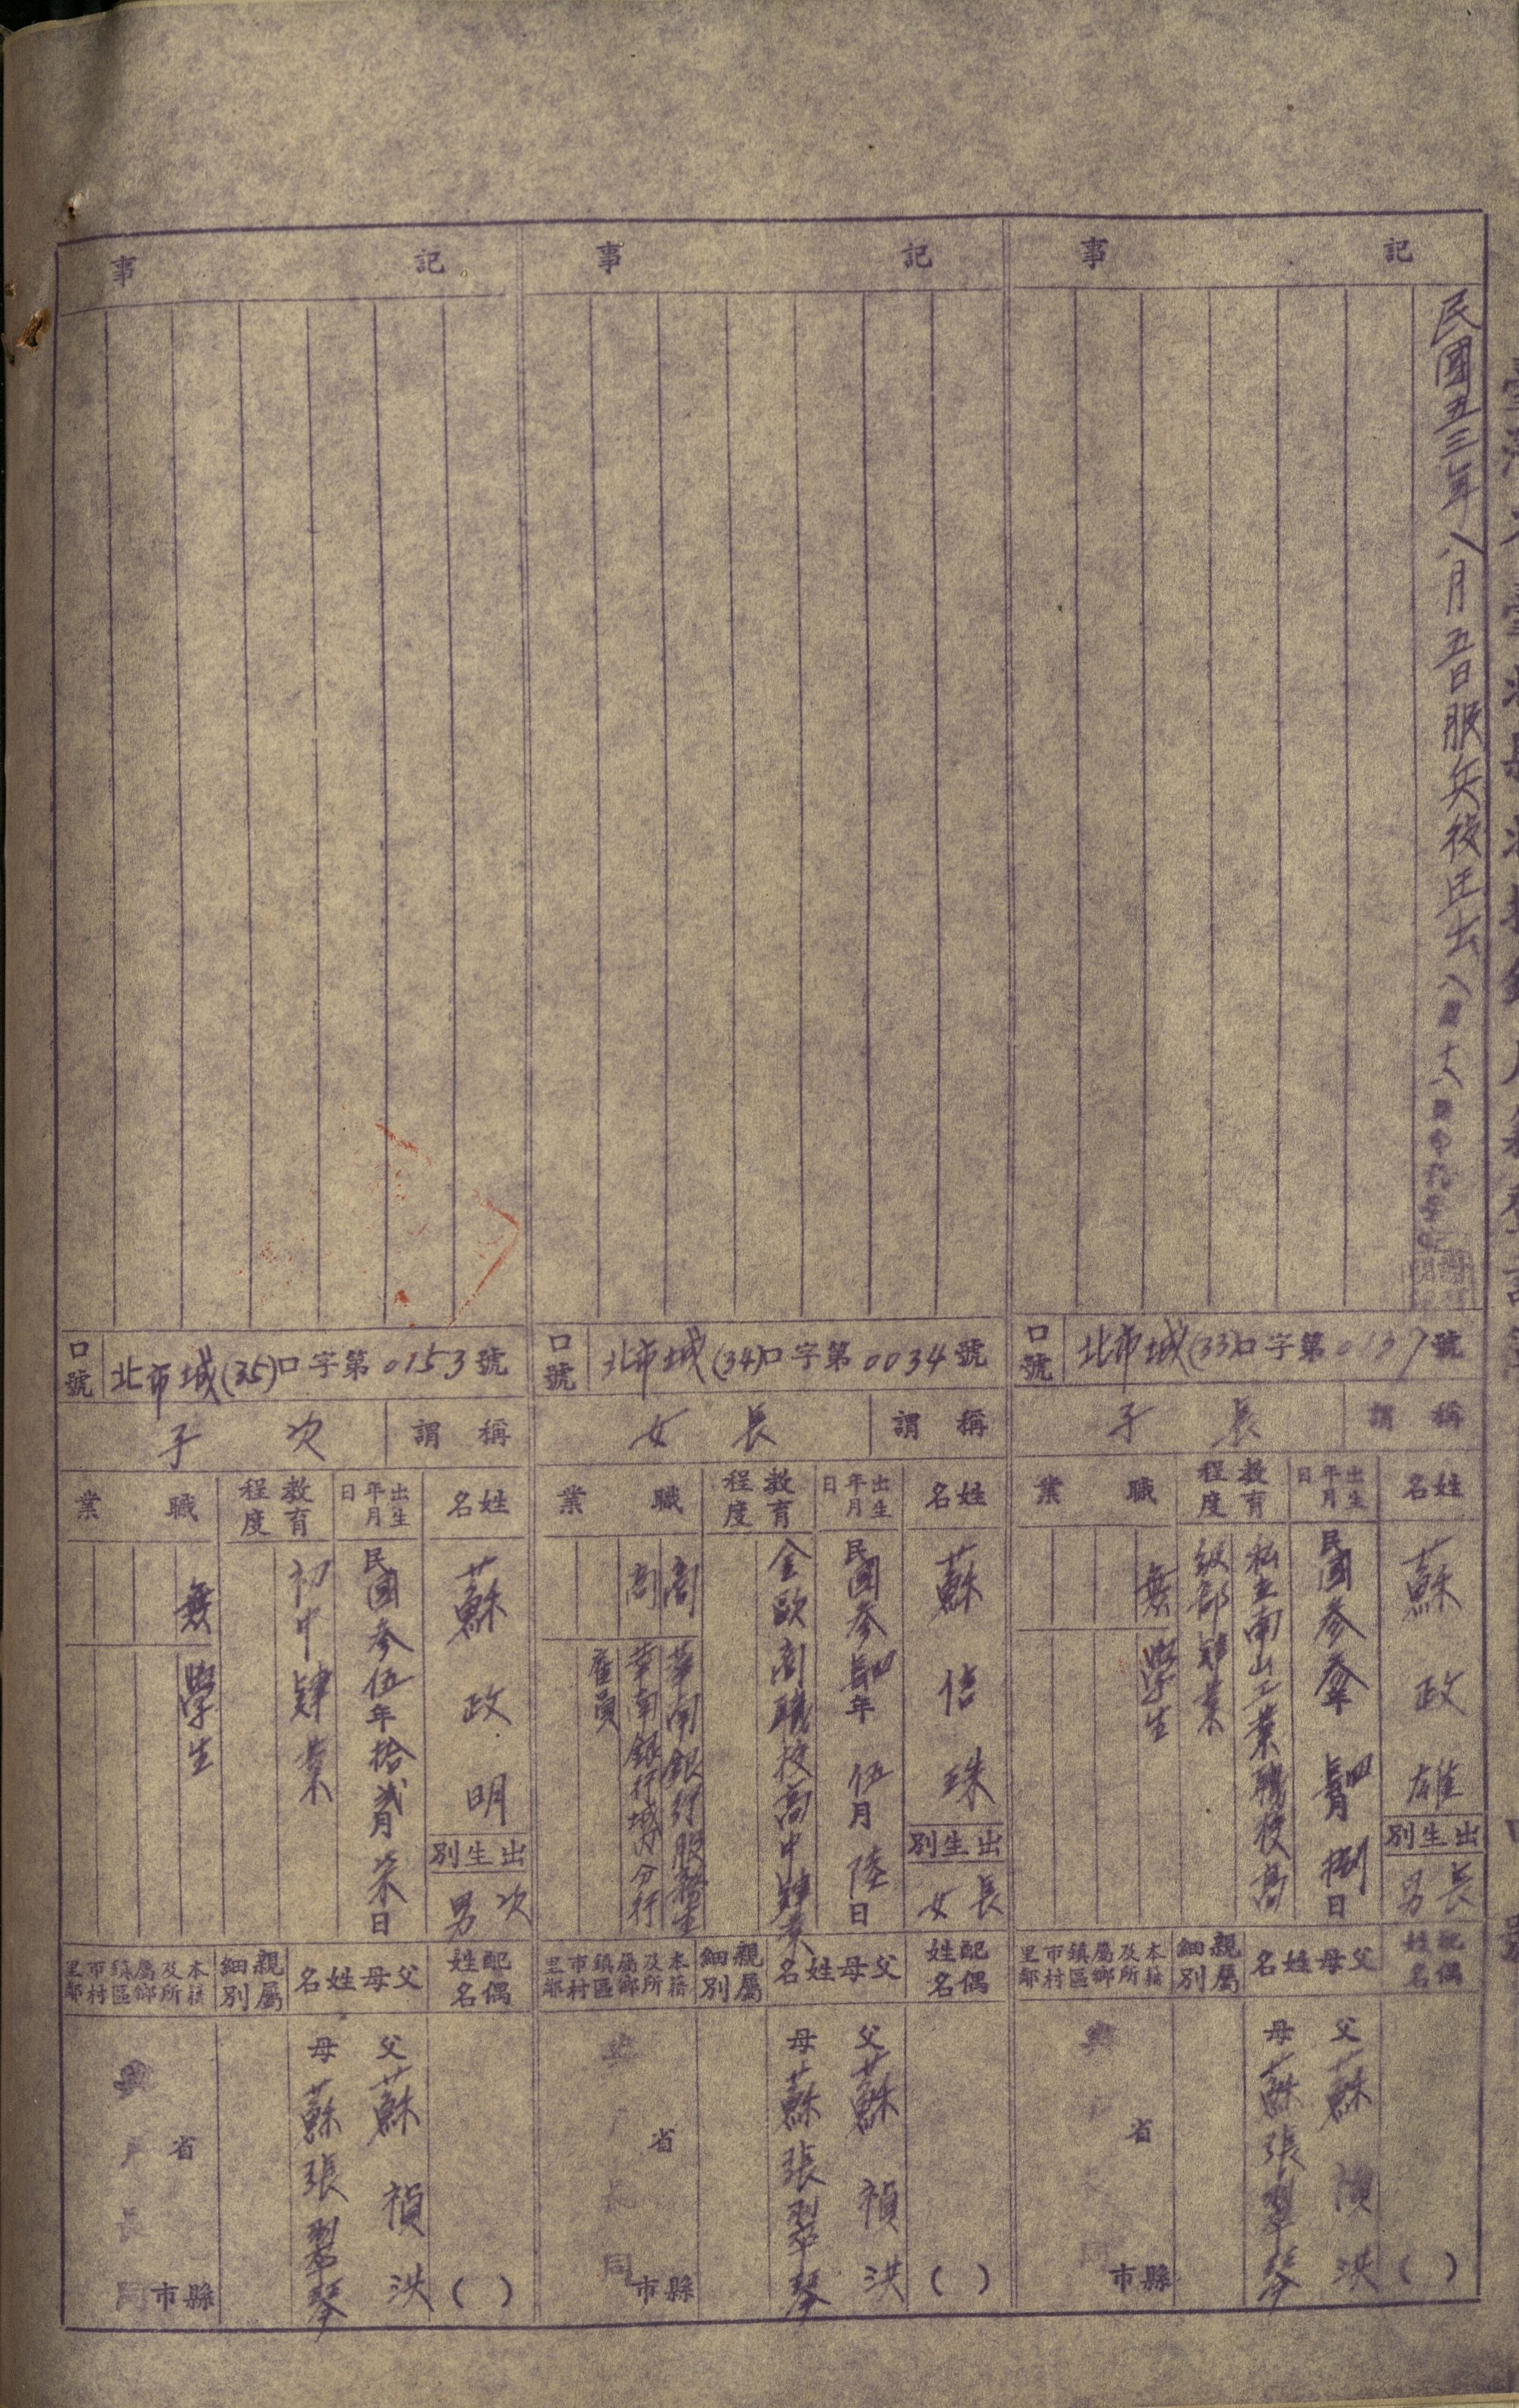 記事
民國五三年八月五日服兵役遷出八月十八日申報登記
口號
北市城(33)口字第0137號
稱謂
長子
姓名
蘇政雄
出生別
長男
出生年月日
民國參參年肆月捌日
教育程度
私立南山工業職校高
級部肄業
職業
無
學生
配偶姓名
( )
父母姓名
父蘇禎洪
母蘇張翠琴
親屬細別
本籍及所屬鄉鎮區市村里鄰
省
縣市
與戶長同
記事
口號
北市城(34)口字第0034號
稱謂
長女
姓名
蘇信珠
出生別
長女
出生年月日
民國參肆年伍月陸日
教育程度
金歐商職校高中肄業
職業
商
華南銀行服務生
商
華南銀行城內分行
雇員
配偶姓名
( )
父母姓名
父蘇禎洪
母蘇張翠琴
親屬細別
本籍及所屬鄉鎮區市村里鄰
省
縣市
與戶長同
記事
口號
北市城(35)口字第0153號
稱謂
次子
姓名
蘇政明
出生別
次男
出生年月日
民國參伍年拾貳月柒日
教育程度
初中肄業
職業
無
學生
配偶姓名
( )
父母姓名
父蘇禎洪
母蘇張翠琴
親屬細別
本籍及所屬鄉鎮區市村里鄰
省
縣市
與戶長同